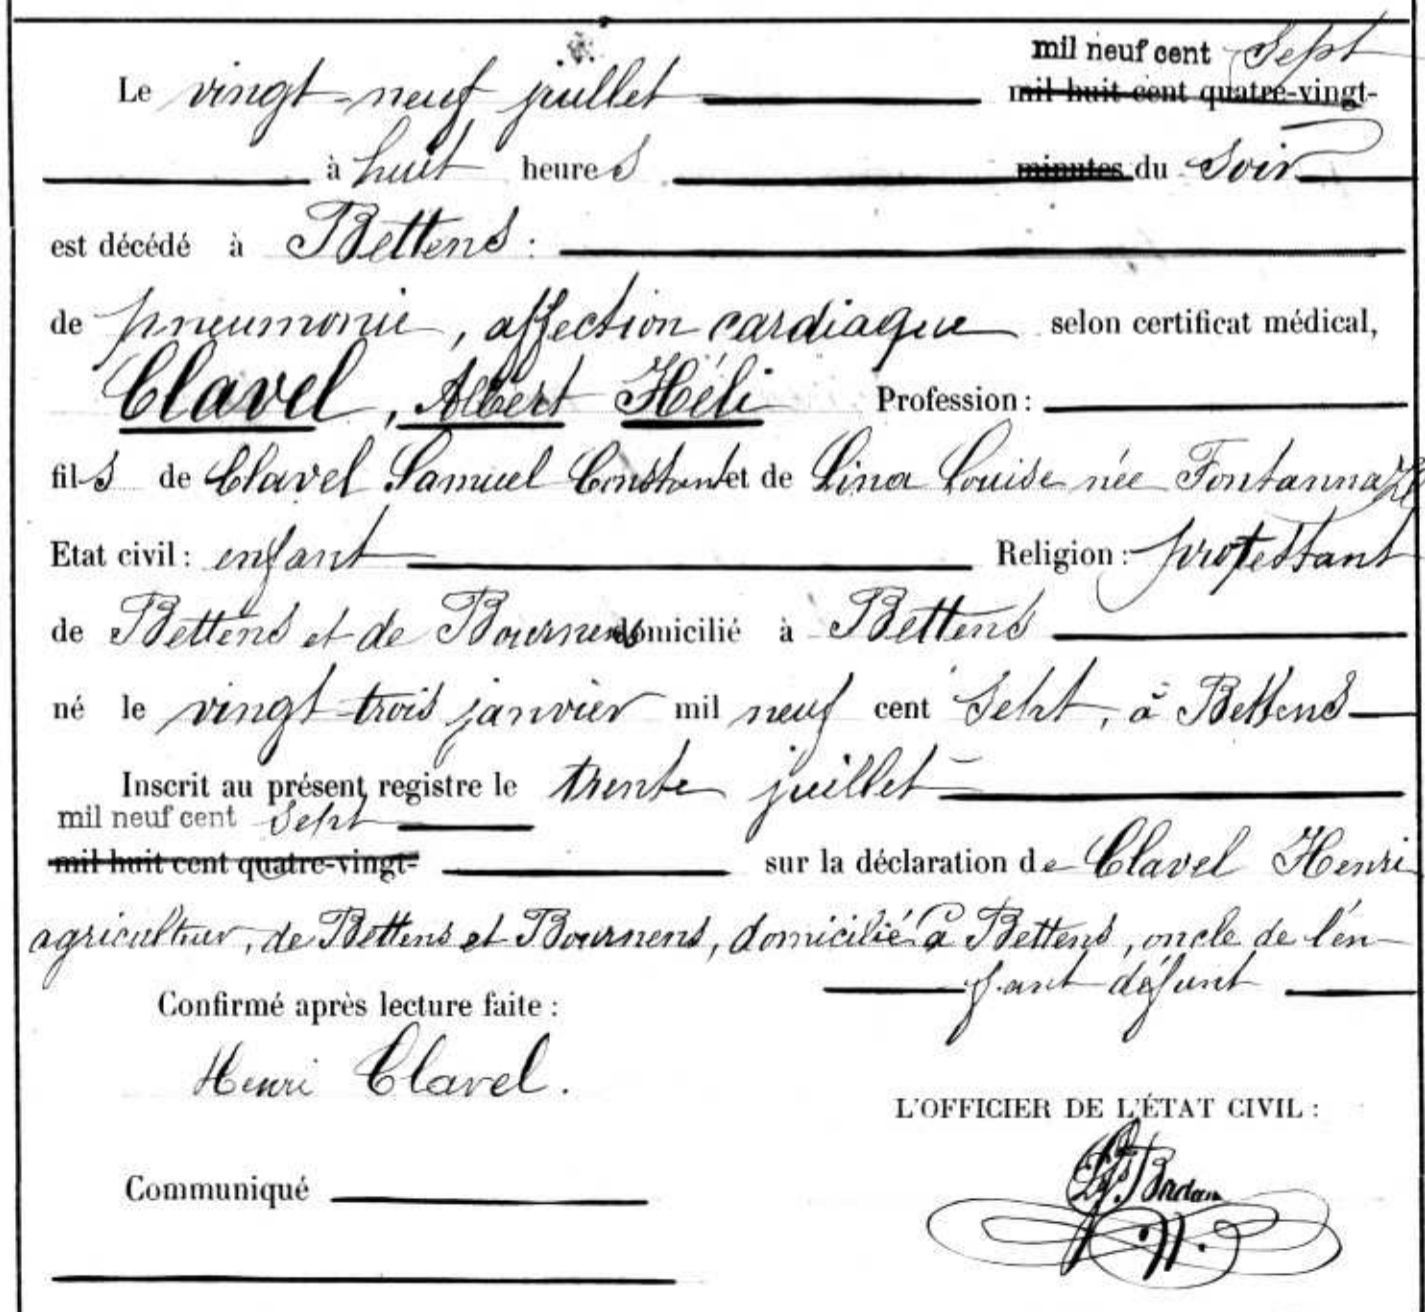 mil neuf cent Sept
Le vingt-neuf juillet mil huit cent quatre-vingt-
à huit heures minutes du Soir
est décédé à Bettens :
de pneumonie, affection cardiaque selon certificat médical,
Clavel, Albert Héli Profession :
fils de Clavel Samuel Constant et de Lina Louise née Fontannaz
Etat civil : enfant Religion : protestant
de Bettens et de Bournens domicilié à Bettens
né le vingt trois janvier mil neuf cent Sept, à Bettens
Inscrit au présent registre le trente juillet
mil neuf cent Sept
mil huit cent quatre-vingt- sur la déclaration de Clavel Henri
agriculteur, de Bettens et Bournens, domicilié à Bettens, oncle de l'en-
fant défunt
Confirmé après lecture faite :
Henri Clavel.
L'OFFICIER DE L'ÉTAT CIVIL :
Communiqué